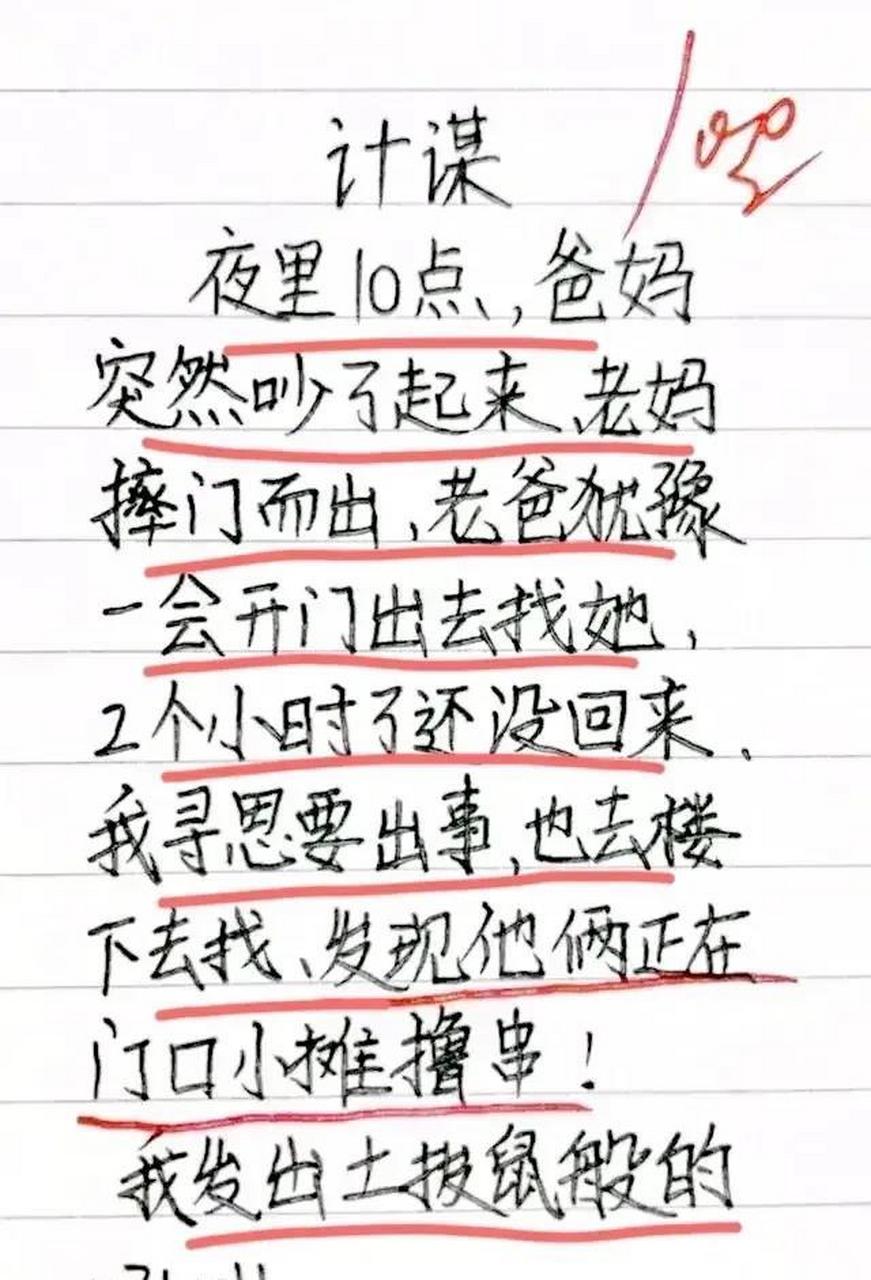 计谋
100
夜里10点,爸妈
突然吵了起来、老妈
摔门而出,老爸犹豫
一会开门出去找她,
2个小时了还没回来、
我寻思要出事,也去楼
下去找、发现他俩正在
门口小摊撸串!
我发出土拨鼠般的